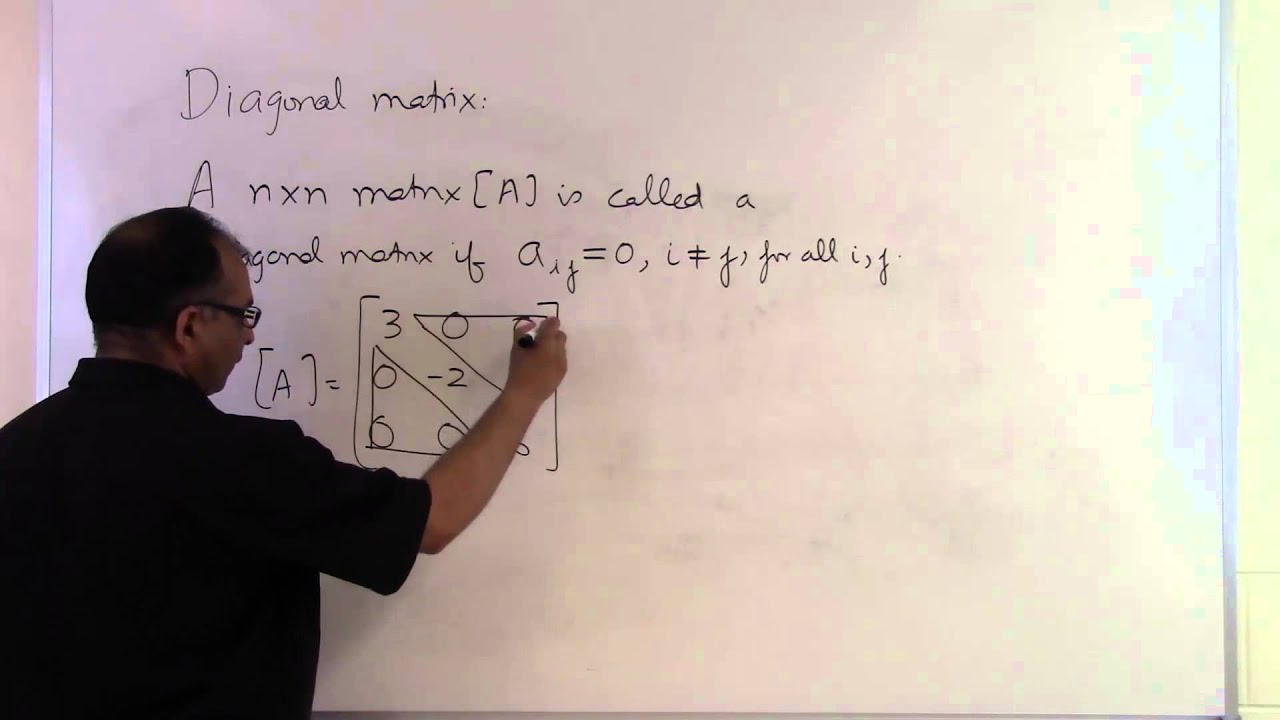 Diagonal matrix:
A n×n matrix [A] is called a
matrix if a_ij = 0, i ≠ j, for all i, j.
3 0
[A] = 0 -2
0 0